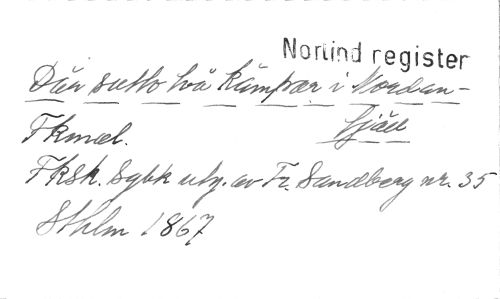 Norlind register
Där sutto två kämpar i Nordan-
fjäll
Fkmel.
Fksk. Sgbk utg. av Fr. Sandberg nr. 35
Sthlm 1867